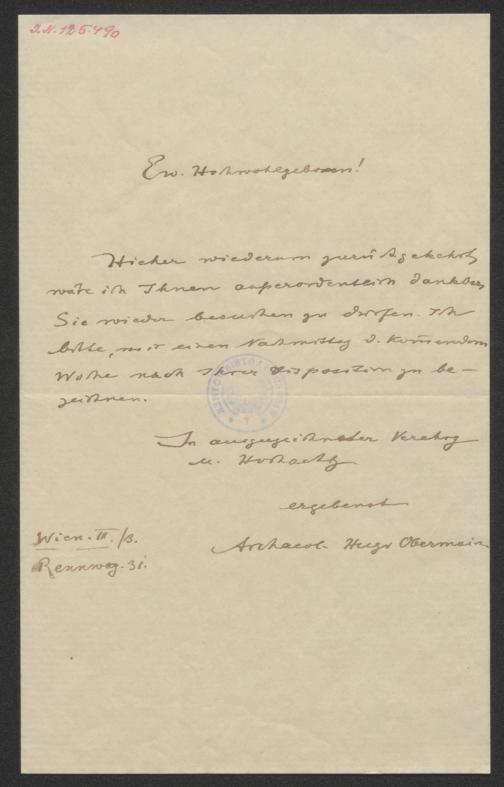 J.N. 125.490
Ew. Hochwohlgeboren!
Hieher wiederum zurückgekehrt,
wäre ich Ihnen außerordentlich dankbar,
Sie wieder besuchen zu dürfen. Ich
bitte, mir einen Nachmittag d. kom̅enden
Woche nach Ihrer Disposition zu be-
zeichnen.
In ausgezeichneter Verehrg
u. Hochachtg
ergebenst
Wien. III./3.
Rennweg. 31.
Hugo Obermaier